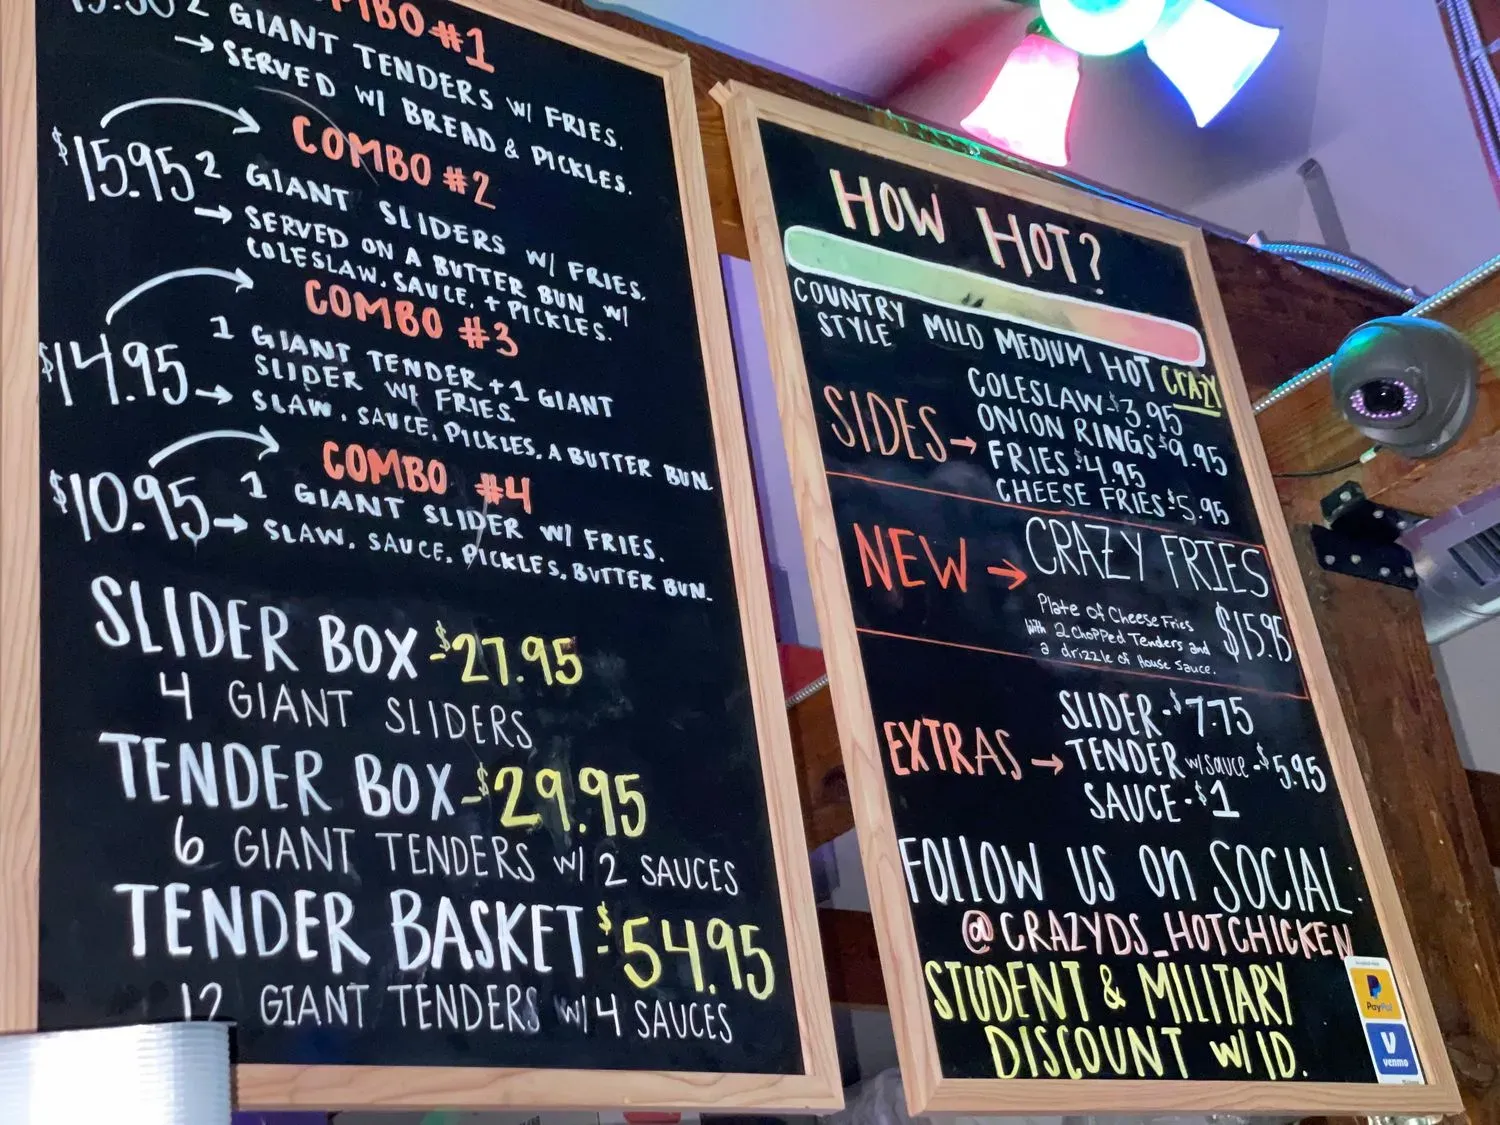 COMBO #1
2 GIANT TENDERS W/ FRIES.
→ SERVED W/ BREAD & PICKLES.
COMBO #2
$15.95 2 GIANT SLIDERS W/ FRIES.
→ SERVED ON A BUTTER BUN W/
COLESLAW, SAUCE, + PICKLES.
COMBO #3
$14.95 1 GIANT TENDER + 1 GIANT
SLIDER W/ FRIES.
→ SLAW, SAUCE, PICKLES, A BUTTER BUN.
COMBO #4
$10.95 1 GIANT SLIDER W/ FRIES.
→ SLAW, SAUCE, PICKLES, BUTTER BUN.
SLIDER BOX -$27.95
4 GIANT SLIDERS
TENDER BOX -$29.95
6 GIANT TENDERS W/ 2 SAUCES
TENDER BASKET $54.95
12 GIANT TENDERS W/ 4 SAUCES
HOW HOT?
COUNTRY STYLE MILD MEDIUM HOT CRAZY
SIDES →
COLESLAW-$3.95
ONION RINGS-$9.95
FRIES-$4.95
CHEESE FRIES-$5.95
NEW → CRAZY FRIES
Plate of Cheese Fries
With 2 Chopped Tenders and
a drizzle of House Sauce.
$15.95
EXTRAS →
SLIDER-$7.75
TENDER w/sauce -$5.95
SAUCE-$1
FOLLOW US on SOCIAL:
@CRAZYDS_HOTCHICKEN
STUDENT & MILITARY
DISCOUNT W/ ID.
PayPal
venmo